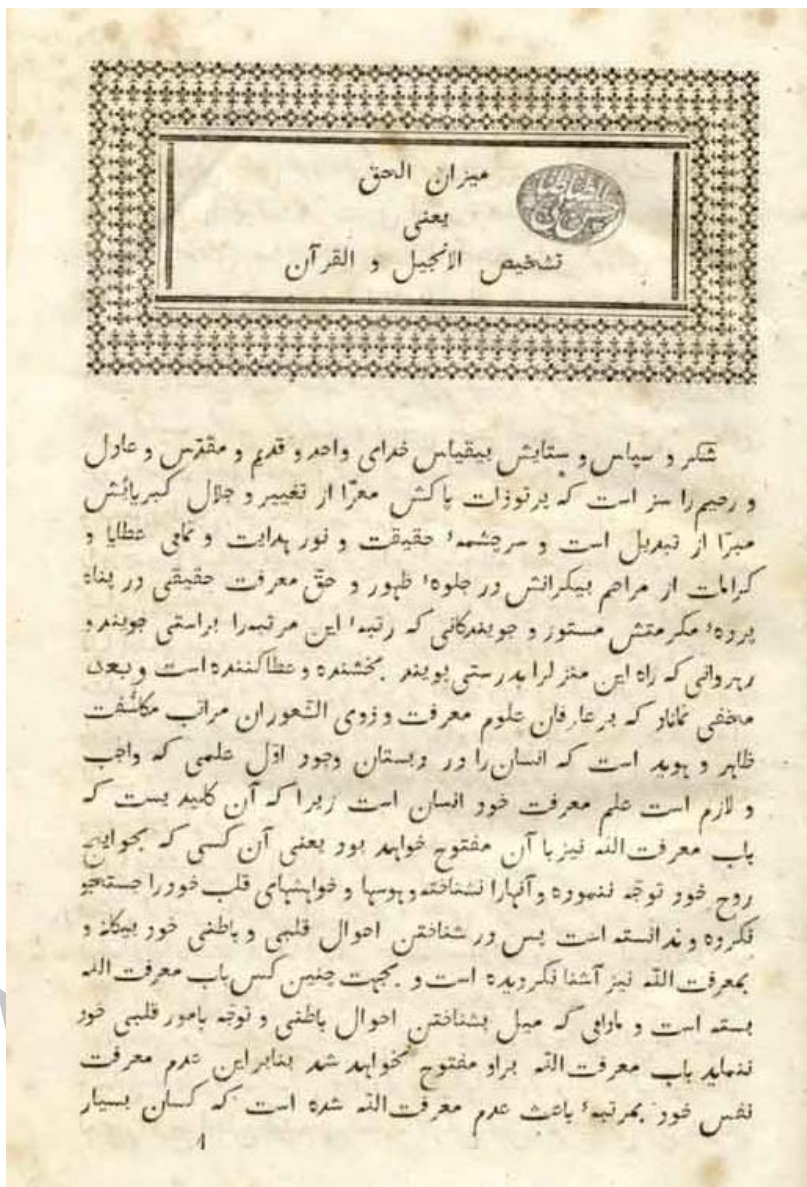 میزان الحق
یعنی
تشخیص الانجیل و القرآن
شکر و سپاس و ستایش بیقیاس خدای واحد و قدیم و مقدّس و عادل
و رحیم را سز است که پرتوذات پاکش معرّا از تغییر و جلال کبریائش
مبرّا از تبدیل است و سرچشمهٔ حقیقت و نور هدایت و تمامی عطایا و
کرامات از مراحم بیکرانش در جلوهٔ ظهور و حقّ معرفت حقیقی در پناه
پردهٔ مکرمتش مستور و جویندکانی که رتبهٔ این مرتبه‌را براستی جویند و
رهروانی که راه این منزلرا بدرستی پویند بخشنده و عطاکننده است و بعد
مخفی نماناد که بر عارفان علوم معرفت و ذوی الشّعوران مراتب مکاشفت
ظاهر و هوید است که انسان را در دبستان وجود اوّل علمی که واجب
و لازم است علم معرفت خود انسان است زیرا که آن کلید یست که
باب معرفت اللّه نیز با آن مفتوح خواهد بود یعنی آن کسی که بحوایج
روح خود توجّه ننموده و آنهارا نشناخته و هوسها و خواهشهای قلب خود را جستجو
نکرده و ندانسته است پس در شناختن احوال قلبی و باطنی خود بیکانه و
بمعرفت اللّه نیز آشنا نکردیده است و بجهت چنین کس باب معرفت اللّه
بسته است و مادامی که میل بشناختن احوال باطنی و توجّه بامور قلبی خود
ننماید باب معرفت اللّه براو مفتوح نخواهد شد بنابراین عدم معرفت
نفس خود بمرتبهٔ باعث عدم معرفت اللّه شده است که کسان بسیار
1